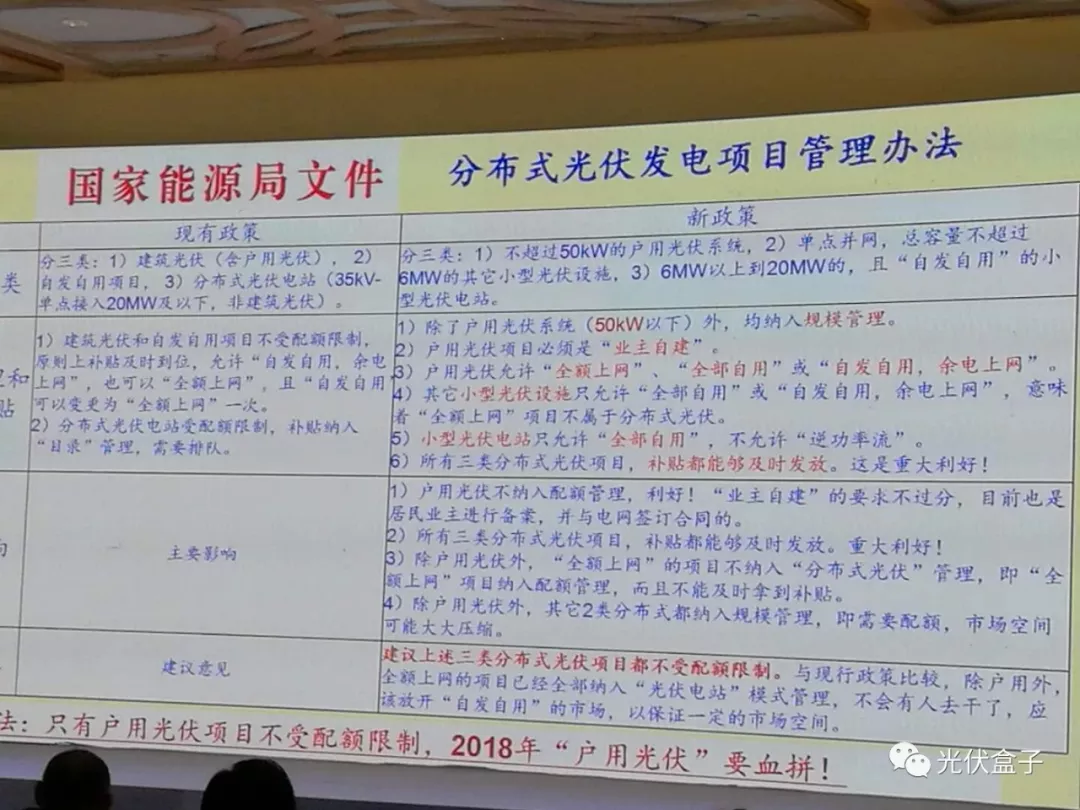 国家能源局文件
分布式光伏发电项目管理办法
现有政策
新政策
类
分三类：1）建筑光伏（含户用光伏），2）
自发自用项目，3）分布式光伏电站（35kV-
单点接入20MW及以下，非建筑光伏）。
分三类：1）不超过50kW的户用光伏系统，2）单点并网，总容量不超过
6MW的其它小型光伏设施，3）6MW以上到20MW的，且“自发自用”的小
型光伏电站。
和
贴
1）建筑光伏和自发自用项目不受配额限制，
原则上补贴及时到位，允许“自发自用，余电
上网”，也可以“全额上网”，且“自发自用
可以变更为“全额上网”一次。
2）分布式光伏电站受配额限制，补贴纳入
“目录”管理，需要排队。
1）除了户用光伏系统（50kW以下）外，均纳入规模管理。
2）户用光伏项目必须是“业主自建”。
3）户用光伏允许“全额上网”、“全部自用”或“自发自用，余电上网”。
4）其它小型光伏设施只允许“全部自用”或“自发自用，余电上网”，意味
着“全额上网”项目不属于分布式光伏。
5）小型光伏电站只允许“全部自用”，不允许“逆功率流”。
6）所有三类分布式光伏项目，补贴都能够及时发放。这是重大利好！
主要影响
1）户用光伏不纳入配额管理，利好！“业主自建”的要求不过分，目前也是
居民业主进行备案，并与电网签订合同的。
2）所有三类分布式光伏项目，补贴都能够及时发放。重大利好！
3）除户用光伏外，“全额上网”的项目不纳入“分布式光伏”管理，即“全
额上网”项目纳入配额管理，而且不能及时拿到补贴。
4）除户用光伏外，其它2类分布式都纳入规模管理，即需要配额，市场空间
可能大大压缩。
建议意见
建议上述三类分布式光伏项目都不受配额限制。与现行政策比较，除户用外，
全额上网的项目已经全部纳入“光伏电站”模式管理，不会有人去干了，应
该放开“自发自用”的市场，以保证一定的市场空间。
法：只有户用光伏项目不受配额限制，2018年“户用光伏”要血拼！
光伏盒子